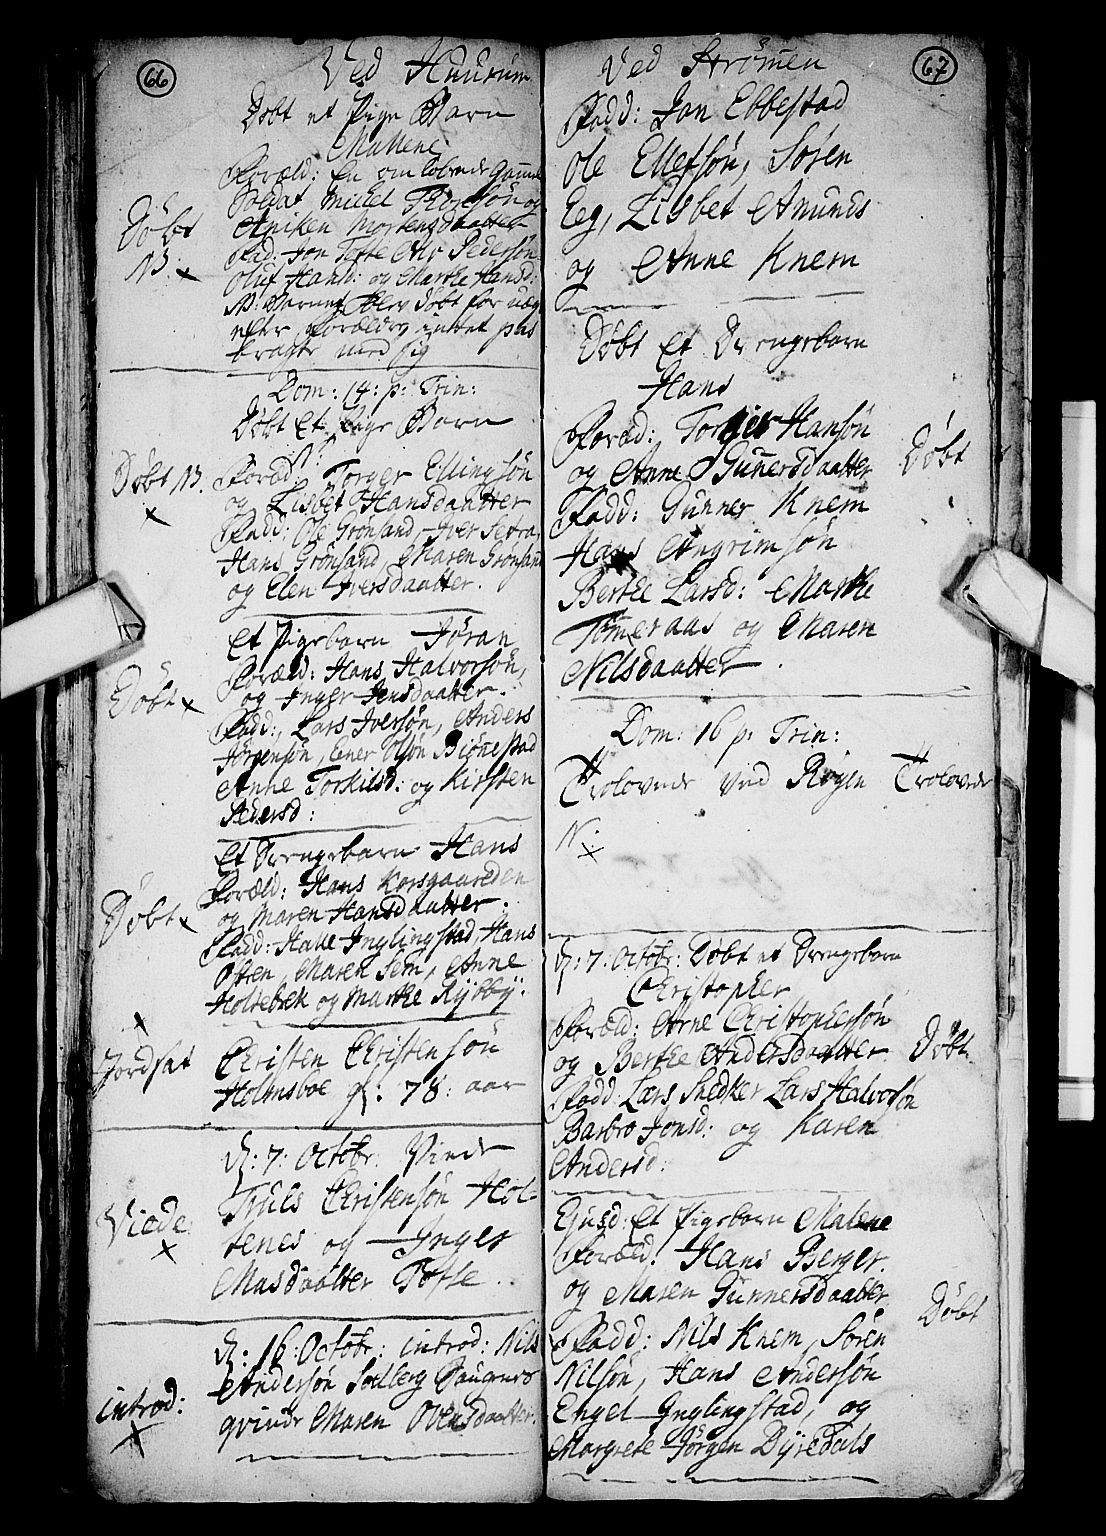 66
Ved Huurum
Døbt et Pige Barn
Mallene
Foræld: En om løbende Gammel
Soldat Mickel Thorsøn og
Aniken Mortensdaatter
Fad: Jon Tofte Ano Pedersøn
Oluf Hans: og Marthe Hansd:
N: Barnet blev døbt for
efter Forældre intet pas
bragte med sig
Døbt
N: x
Dom: 14: p: Trin:
Døbt Et Pige Barn
N:
Døbt N.
x
Foræld: Torger Ellingsøn
og Lisbet Hansdaatter
Fadd: Ole Grønsand Iver Setra,
Hans Grønsand Maren Grønsand
og Elen Iversdaatter.
Et Pigebarn Jøran
Foræld: Hans Halvorsøn,
og Inger Jensdaatter.
Døbt x
Fadd: Lars Iversøn, Anders
Jørgensøn, Ener Olsøn Biønestad
Anne Torkilsd: og Kirsten
Pedersd:
Et Drengebarn Hans
Foræld: Hans Korsgaarden
og Maren Hansdaatter.
Døbt x
Fadd: Halle Inglingstad, Hans
Ofren, Maren Sem, Anne
Holtebek og Marthe Rysby:
x
Jordsat
Christen Christensøn
Holmsboe gl: 78: aar
d: 7: Octobr: Viede
Truls Christensøn Hol-
tenes og Inger
Masdaatter Tofte
Viede
x
d: 16: Octobr: introd: Nils
Andersøn Solberg Haugens
qvinde Maren Ovensdaatter.
introd:
x
67
Ved Strømen
Fadd: Jan Ebbestad
Ole Ellefsøn, Søren
Eeg, Lisbet Amunds
og Anne Knem
Døbt Et Drengebarn
Hans
Foræld: Torger Hansøn
og Anne Gunnersdaatter
Døbt
Fadd: Gunner Knem
Hans Angrimsøn
Berthe Larsd: Marthe
Tømeraas og Maren
Nilsdaatter
Dom: 16 p: Trin:
Trolovede ved Røgen
Trolovede
N:
x
d: 7: Octobr: Døbt et Drengebarn
Christopher
Foræld: Arne Christophersøn
og Berthe Andersdaatter
Døbt
Fadd: Lars Snedker Lars Halvorsøn
Barbro Jonsd: og Karen
Andersd:
Ejusd: Et Pigebarn Malene
Foræld: Hans Berger
og Maren Gunnersdaatter
Døbt
Fadd: Nils Knem, Søren
Nilsøn, Hans Andersøn
Engel Inglingstad, og
Margrete Jørgen Dyredals